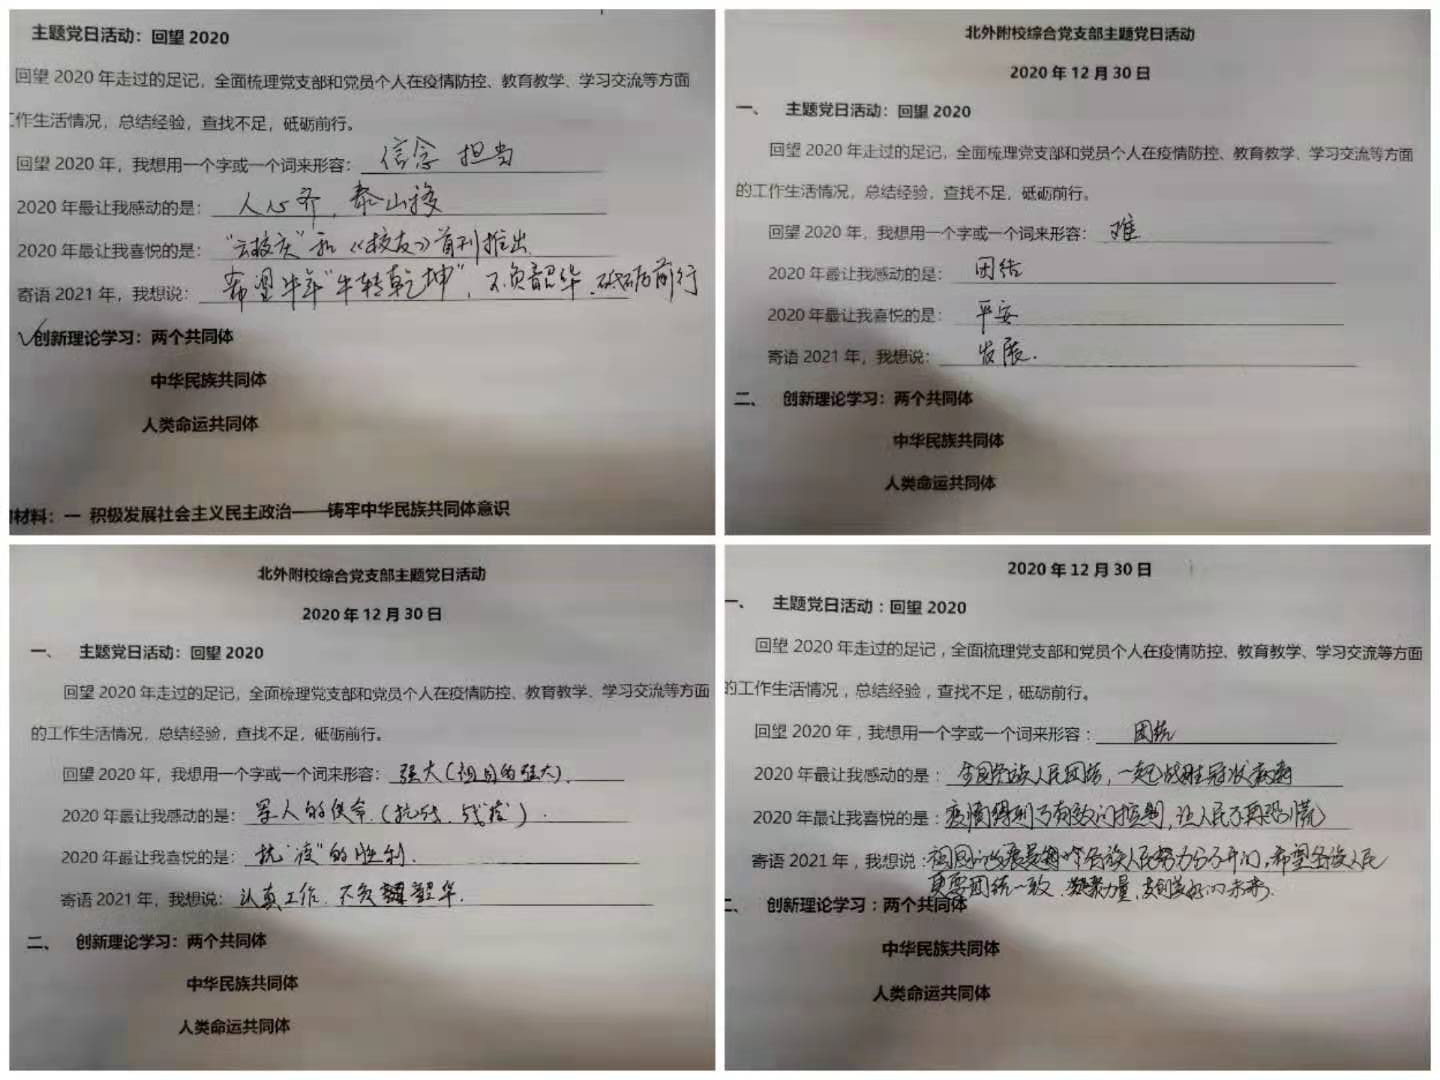 主题党日活动：回望 2020
回望 2020 年走过的足记，全面梳理党支部和党员个人在疫情防控、教育教学、学习交流等方面
工作生活情况，总结经验，查找不足，砥砺前行。
回望 2020 年，我想用一个字或一个词来形容：信念 担当
2020 年最让我感动的是：人心齐，泰山移
2020 年最让我喜悦的是：“云校庆”和《校友》首刊推出
寄语 2021 年，我想说：希望牛年“牛转乾坤”，不负韶华、砥砺前行
√创新理论学习：两个共同体
中华民族共同体
人类命运共同体
材料：一 积极发展社会主义民主政治——铸牢中华民族共同体意识
北外附校综合党支部主题党日活动
2020 年 12 月 30 日
一、 主题党日活动：回望 2020
回望 2020 年走过的足记，全面梳理党支部和党员个人在疫情防控、教育教学、学习交流等方面
的工作生活情况，总结经验，查找不足，砥砺前行。
回望 2020 年，我想用一个字或一个词来形容：难
2020 年最让我感动的是：团结
2020 年最让我喜悦的是：平安
寄语 2021 年，我想说：发展.
二、 创新理论学习：两个共同体
中华民族共同体
人类命运共同体
北外附校综合党支部主题党日活动
2020 年 12 月 30 日
一、 主题党日活动：回望 2020
回望 2020 年走过的足记，全面梳理党支部和党员个人在疫情防控、教育教学、学习交流等方面
的工作生活情况，总结经验，查找不足，砥砺前行。
回望 2020 年，我想用一个字或一个词来形容：强大（祖国的强大）.
2020 年最让我感动的是：军人的使命.（抗战、战疫）.
2020 年最让我喜悦的是：抗“疫”的胜利.
寄语 2021 年，我想说：认真工作、不负韶华.
二、 创新理论学习：两个共同体
中华民族共同体
人类命运共同体
2020 年 12 月 30 日
一、 主题党日活动：回望 2020
回望 2020 年走过的足记，全面梳理党支部和党员个人在疫情防控、教育教学、学习交流等方面
的工作生活情况，总结经验，查找不足，砥砺前行。
回望 2020 年，我想用一个字或一个词来形容：团结
2020 年最让我感动的是：全国各族人民团结，一起战胜冠状病毒
2020 年最让我喜悦的是：疫情得到了有效的控制，让人民不再恐慌
寄语 2021 年，我想说：祖国的发展是各族人民努力分不开的，希望各族人民
更要团结一致、力量，美好的未来.
二、 创新理论学习：两个共同体
中华民族共同体
人类命运共同体